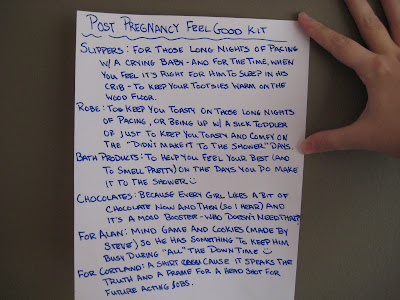 POST PREGNANCY FEEL GOOD KIT
SLIPPERS: FOR THOSE LONG NIGHTS OF PACING
W/ A CRYING BABY - AND FOR THE TIME, WHEN
YOU FEEL IT'S RIGHT FOR HIM TO SLEEP IN HIS
CRIB - TO KEEP YOUR TOOTSIES WARM ON THE
WOOD FLOOR.
ROBE: TO KEEP YOU TOASTY ON THOSE LONG NIGHTS
OF PACING, OR BEING UP W/ A SICK TODDLER
OF JUST TO KEEP YOU TOASTY AND COMFY ON
THE "DIDN'T MAKE IT TO THE SHOWER" DAYS.
BATH PRODUCTS: TO HELP YOU FEEL YOUR BEST (AND
TO SMELL PRETTY) ON THE DAYS YOU DO MAKE
IT TO THE SHOWER
CHOCOLATES: BECAUSE EVERY GIRL LIKES A BIT OF
CHOCOLATE NOW AND THEN (SO I HEAR) AND
IT'S A MOOD BOOSTER - WHO DOESN'T NEED THAT?
FOR ALAN: MIND GAME AND COOKIES (MADE BY
STEVE) SO HE HAS SOMETHING TO KEEP HIM
BUSY DURING "ALL" THE DOWN TIME
FOR CORTLAND: A SHIRT CAUSE IT SPEAKS THE
TRUTH AND A FRAME FOR A HEAD SHOT FOR
FUTURE ACTING JOBS.